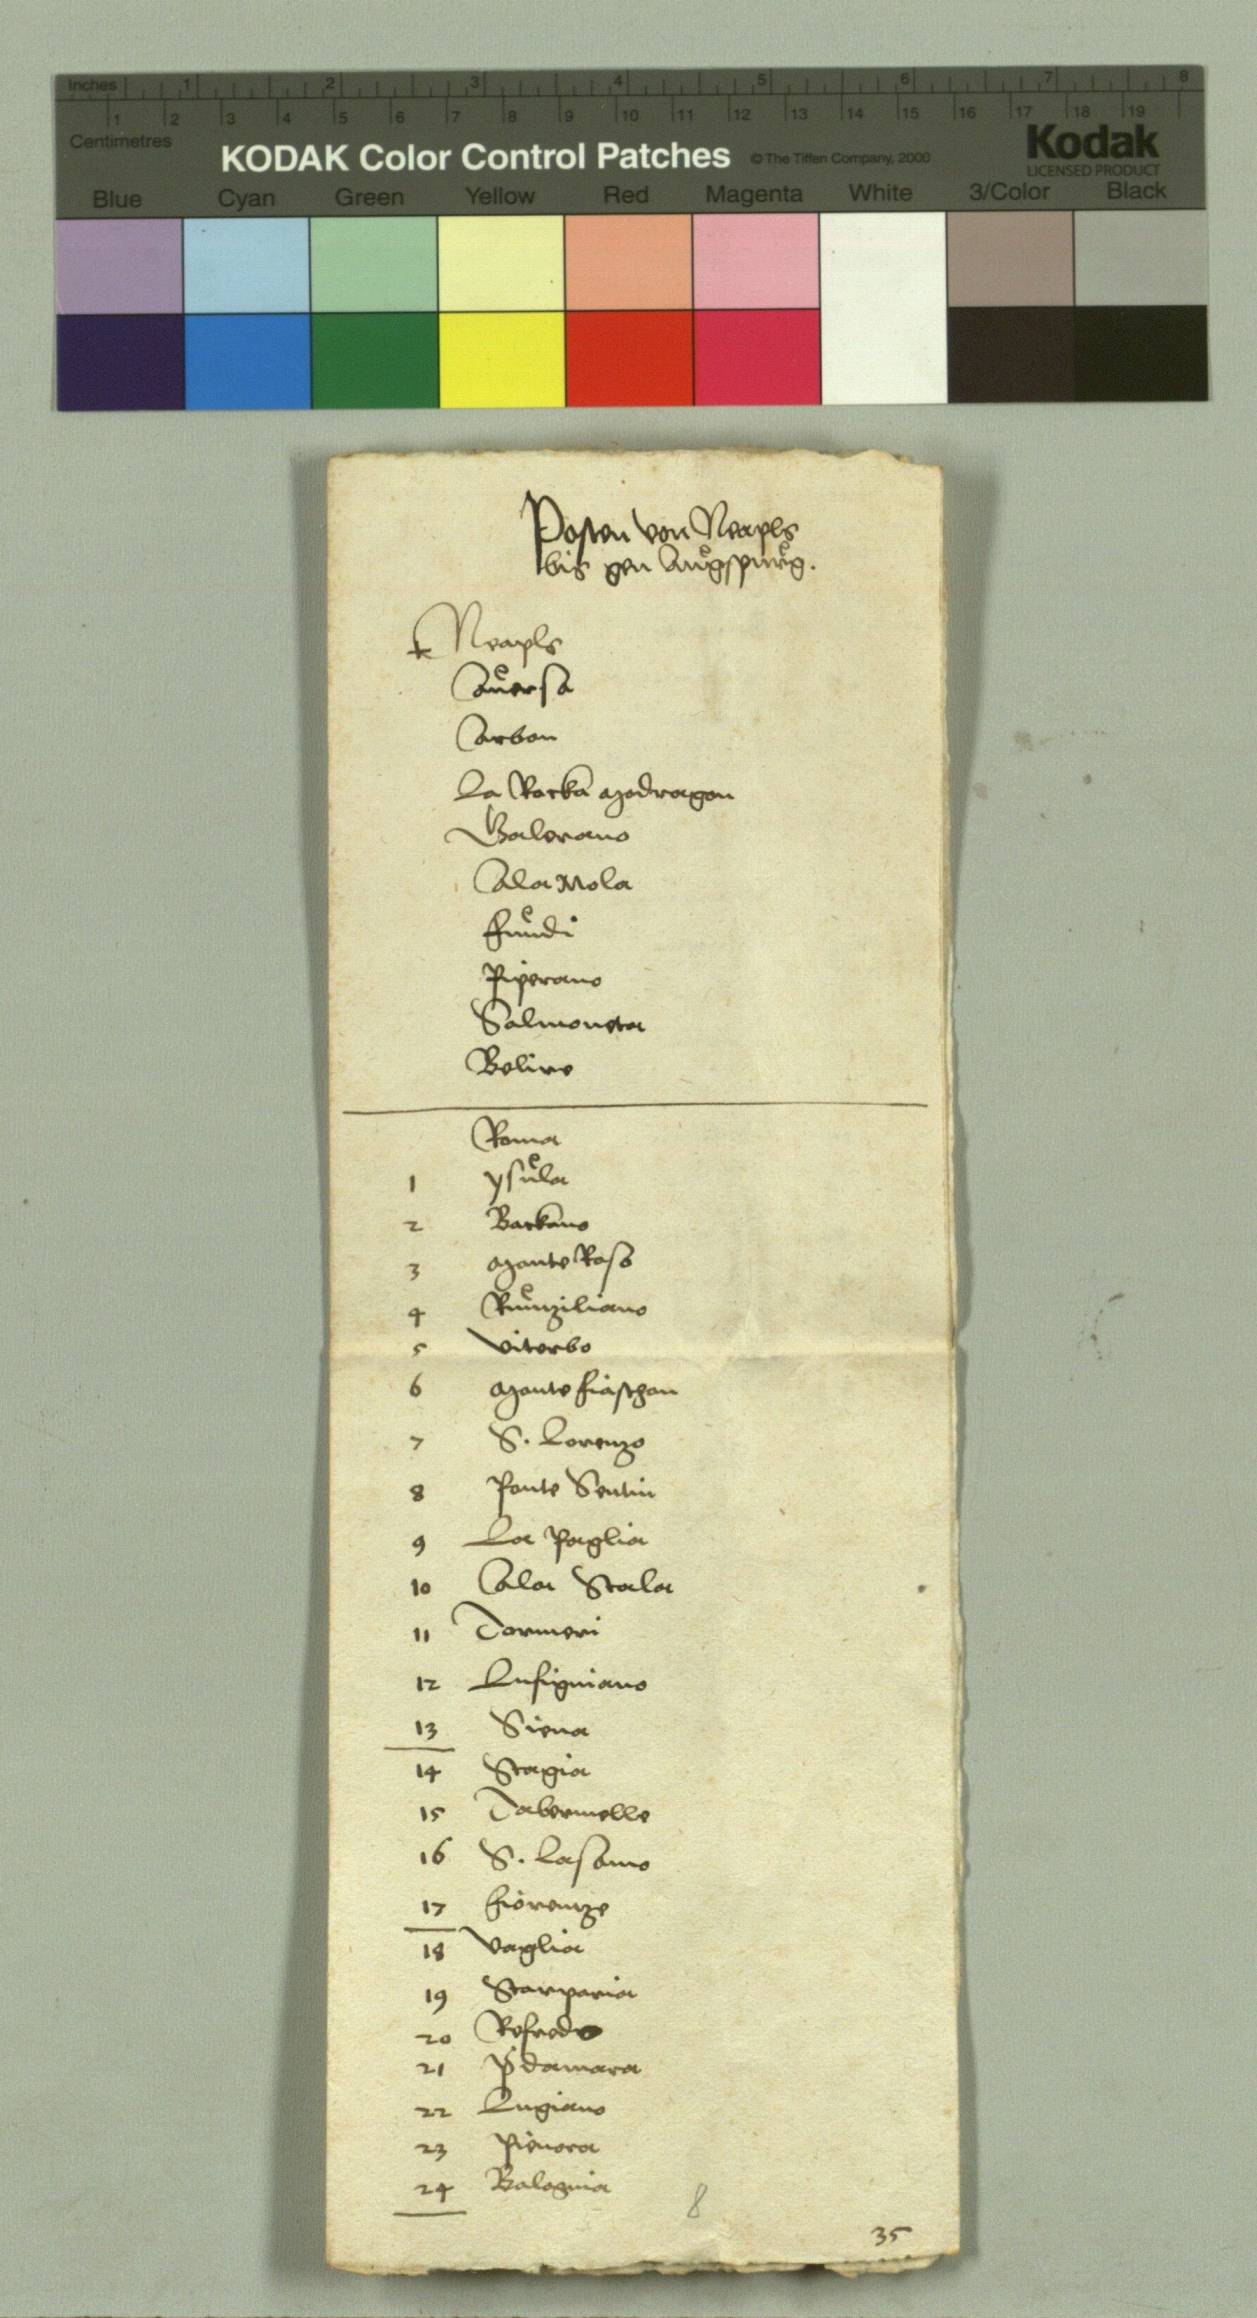 Inches 1 2 3 4 5 6 7 8
1 2 3 4 5 6 7 8 9 10 11 12 13 14 15 16 17 18 19
Centimetres
KODAK Color Control Patches © The Tiffen Company, 2000 Kodak
LICENSED PRODUCT
Blue Cyan Green Yellow Red Magenta White 3/Color Black
Posten von Neapls
bis gen Augspurg.
Neapls
Auersa
Carbon
La Rocka Modragon
Galerano
A la Mola
Fundi
Piperano
Salmoneta
Belitre
Roma
1 ysula
2 Backano
3 Monte Roso
4 Runziliano
5 Viterbo
6 Monte fiaschon
7 S. Lorenzo
8 Ponte Sentin
9 La Paglia
10 A la Scala
11 Tormeri
12 Lusigniano
13 Siena
14 Stagia
15 Tabernelle
16 S. Casano
17 Fiorenze
18 Vaglia
19 Scarparia
20 Refredo
21 P damara
22 Lugiano
23 Pienora
24 Bologma
8
35